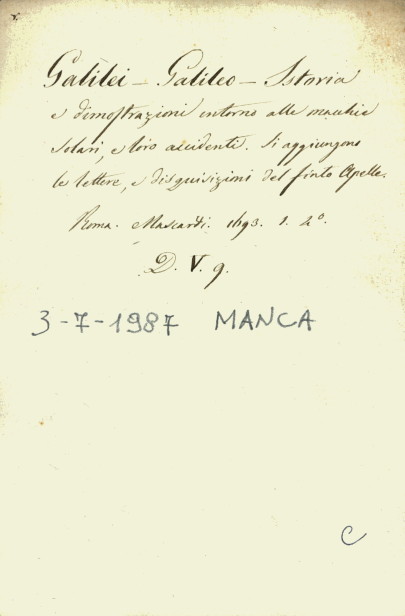 Galilei - Galileo - Istoria
e dimostrazioni intorno alle macchie
Solari, e loro accidenti. Si aggiungono
le lettere, e disquisizioni del finto Apelle.
Roma. Mascardi. 1693. 1. 4°.
D. V. 9.
3-7-1987 MANCA
C